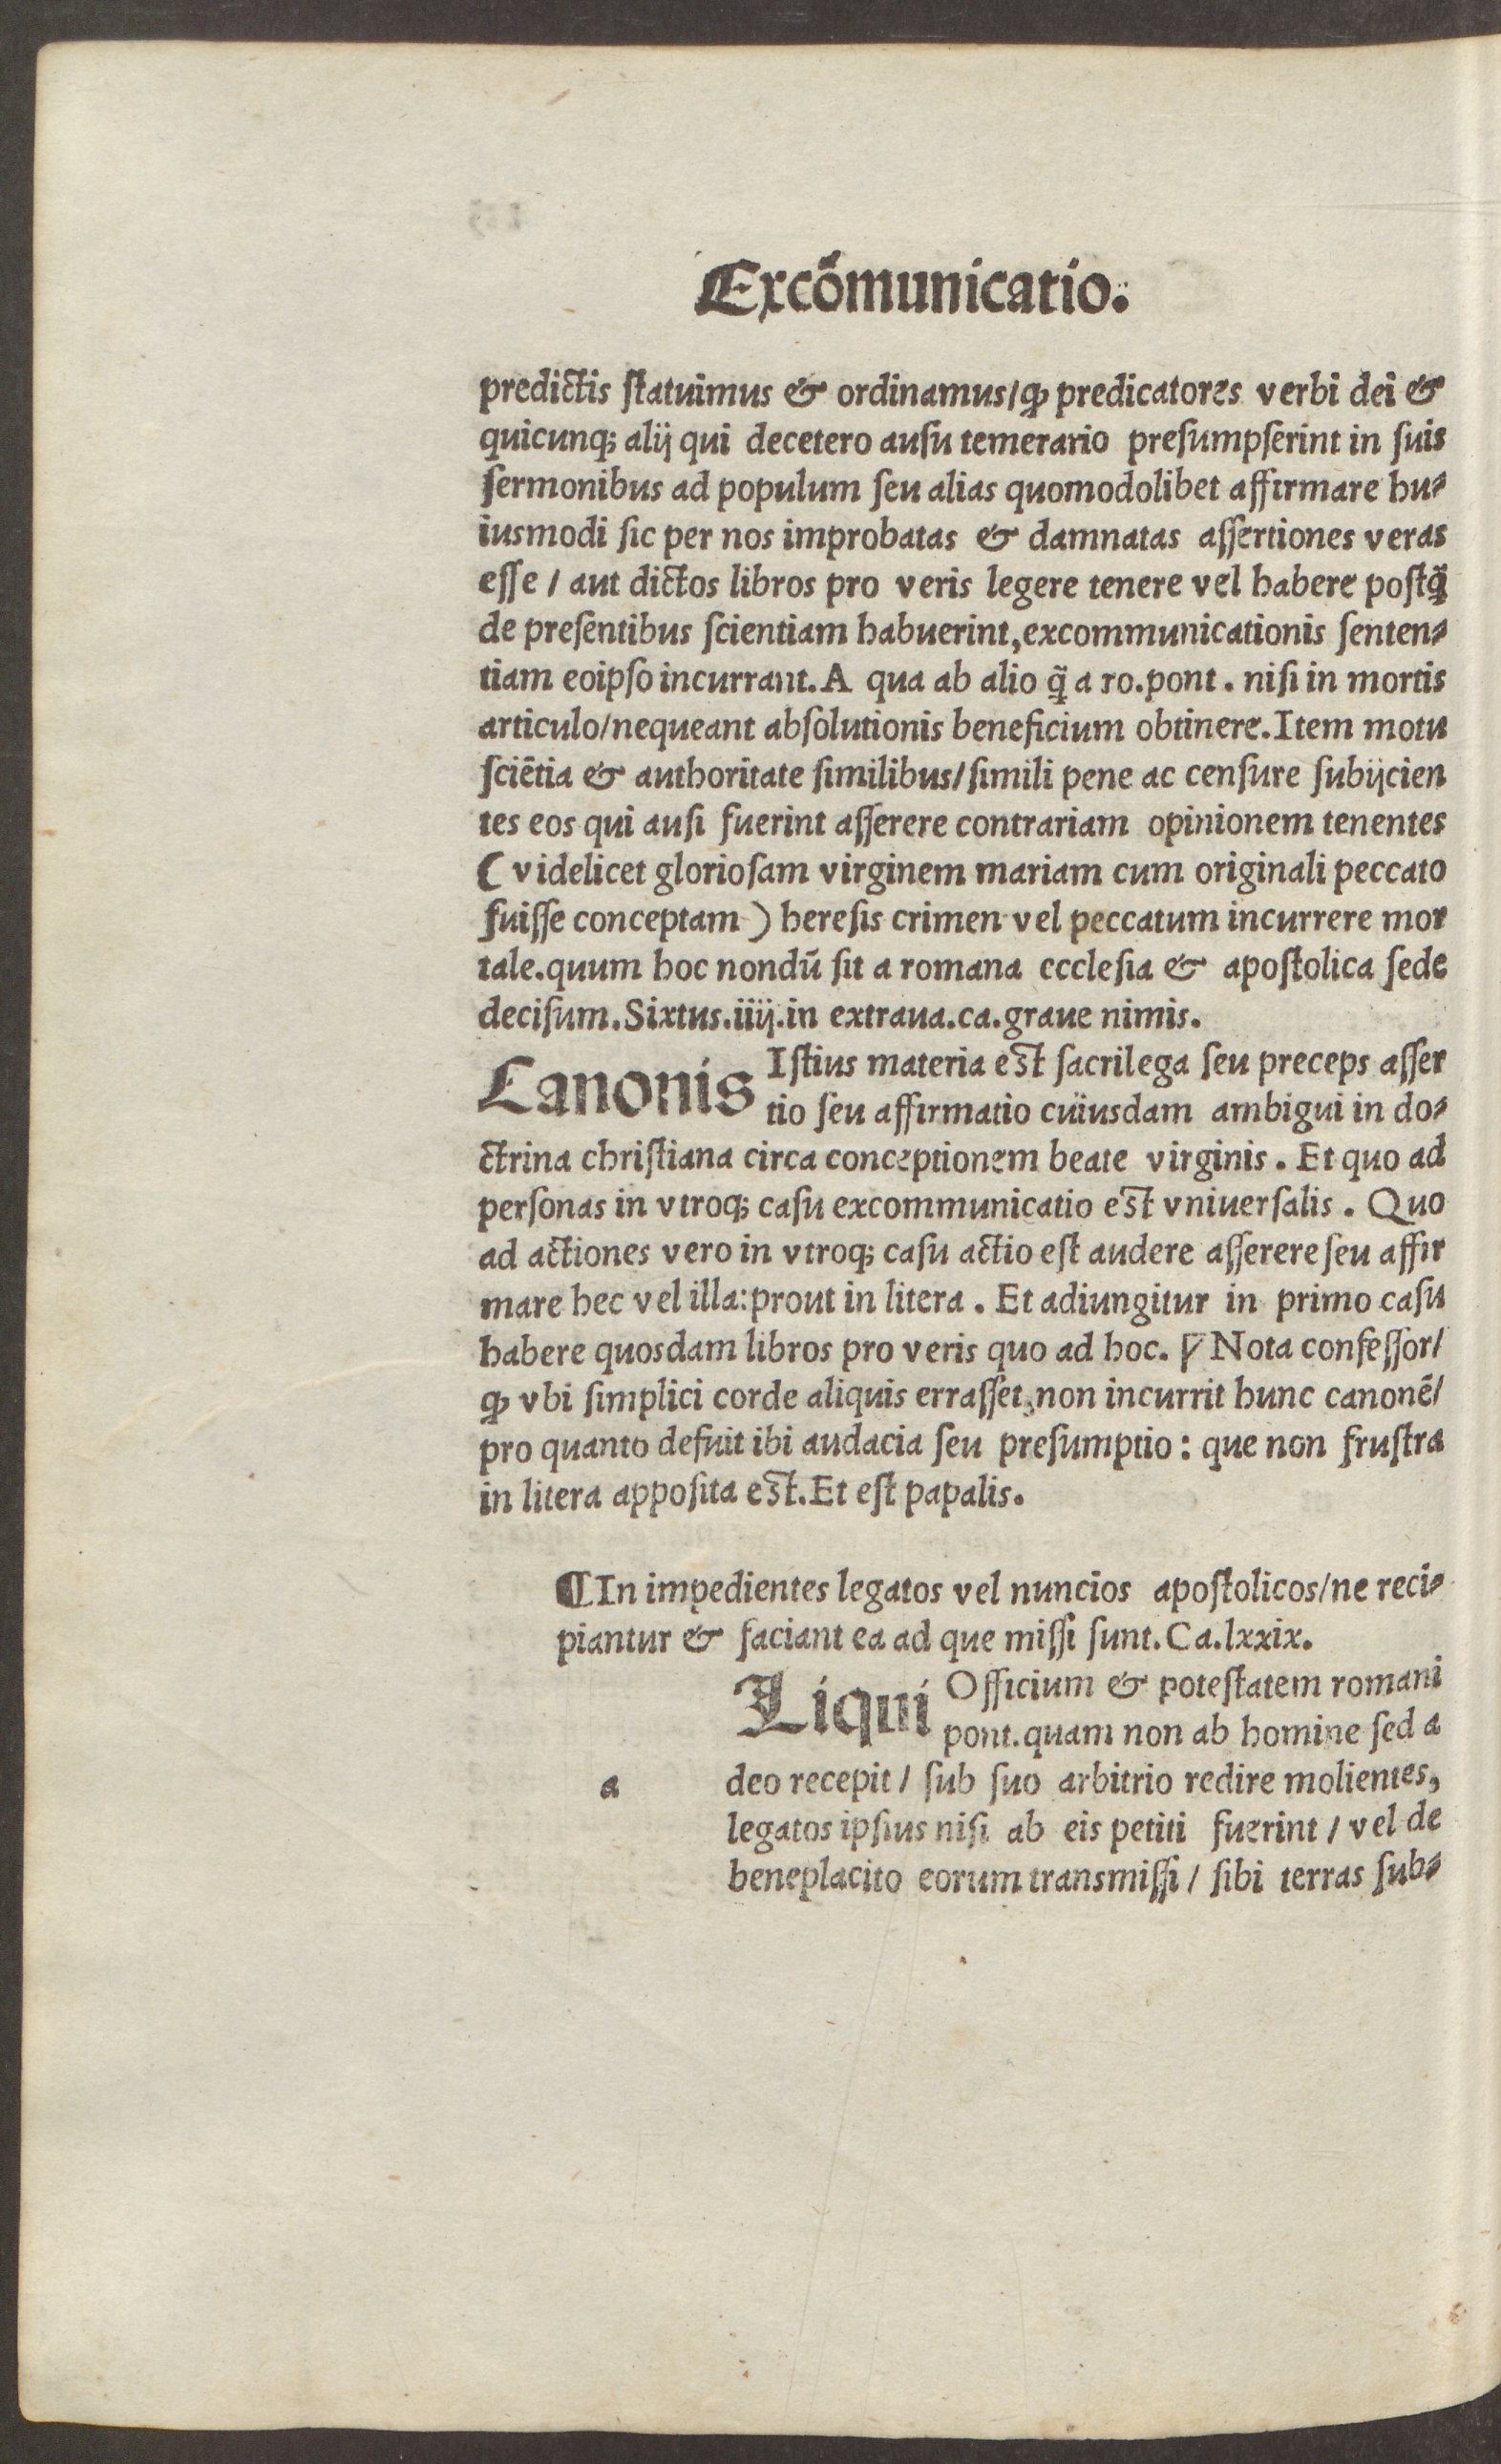 Excõmunicatio.
predictis ſtatuimus & ordinamus/ꝙ predicatores verbi dei &
quicunqꝫ alij qui decetero auſu temerario preſumpſerint in ſuis
ſermonibus ad populum ſeu alias quomodolibet affirmare hu⸗
iusmodi ſic per nos improbatas & damnatas aſſertiones veras
eſſe / aut dictos libros pro veris legere tenere vel habere poſtq̃
de preſentibus ſcientiam habuerint, excommunicationis ſenten⸗
tiam eoipſo incurrant. A qua ab alio q̃ a ro.pont. niſi in mortis
articulo/nequeant abſolutionis beneficium obtinere. Item motu
ſciẽtia & authoritate ſimilibus/ſimili pene ac cenſure ſubijcien
tes eos qui auſi fuerint aſſerere contrariam opinionem tenentes
(videlicet glorioſam virginem mariam cum originali peccato
fuiſſe conceptam) hereſis crimen vel peccatum incurrere mor
tale. quum hoc nondũ ſit a romana eccleſia & apoſtolica ſede
deciſum. Sixtus.iiij.in extraua.ca.graue nimis.
Canonis Iſtius materia eſt ſacrilega ſeu preceps aſſer
tio ſeu affirmatio cuiusdam ambigui in do⸗
ctrina chriſtiana circa conceptionem beate virginis. Et quo ad
perſonas in vtroqꝫ caſu excommunicatio eſt vniuerſalis. Quo
ad actiones vero in vtroqꝫ caſu actio eſt audere aſſerere ſeu affir
mare hec vel illa: prout in litera. Et adiungitur in primo caſu
habere quosdam libros pro veris quo ad hoc. ℣ Nota confeſſor/
ꝙ vbi ſimplici corde aliquis erraſſet, non incurrit hunc canonẽ/
pro quanto defuit ibi audacia ſeu preſumptio: que non fruſtra
in litera appoſita eſt. Et eſt papalis.
¶In impedientes legatos vel nuncios apoſtolicos/ne reci⸗
piantur & faciant ea ad que miſſi ſunt. Ca.lxxix.
Liqui Officium & poteſtatem romani
pont.quam non ab homine ſed a
a deo recepit / ſub ſuo arbitrio redire molientes,
legatos ipſius niſi ab eis petiti fuerint / vel de
beneplacito eorum transmiſſi / ſibi terras ſub⸗